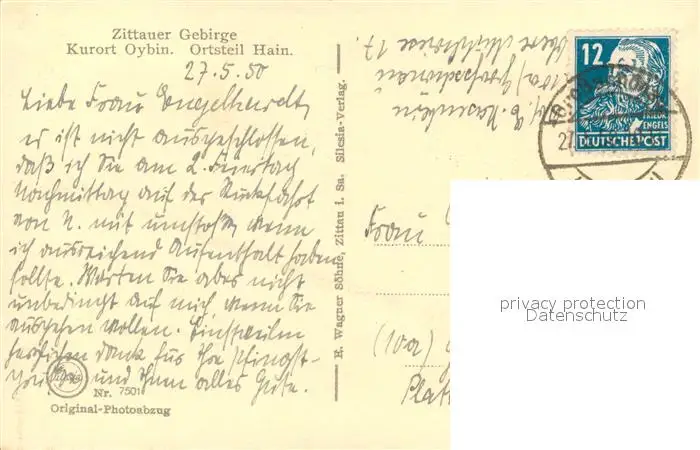 Zittauer Gebirge
Kurort Oybin. Ortsteil Hain.
27.5.50
Liebe Frau Engelhardt,
es ist nicht ausgeschlossen,
daß ich Sie am 2. Feiertag
Nachmittag auf der Rückfahrt
von N. mit wenn
ich ausreichend Aufenthalt haben
sollte. Warten Sie aber nicht
unbedingt auf mich, wenn Sie
ausgehen wollen. Einstweilen
herzlichen Dank für Ihre Pfingst-
und Ihnen alles Gute.
Nr. 7501
Original-Photoabzug
E. Wagner Söhne, Zittau i. Sa. Silesia-Verlag.
(10a) Großschönau
12
FRIEDR.
ENGELS
DEUTSCHE POST
Frau
(10a)
Platt
privacy protection
Datenschutz